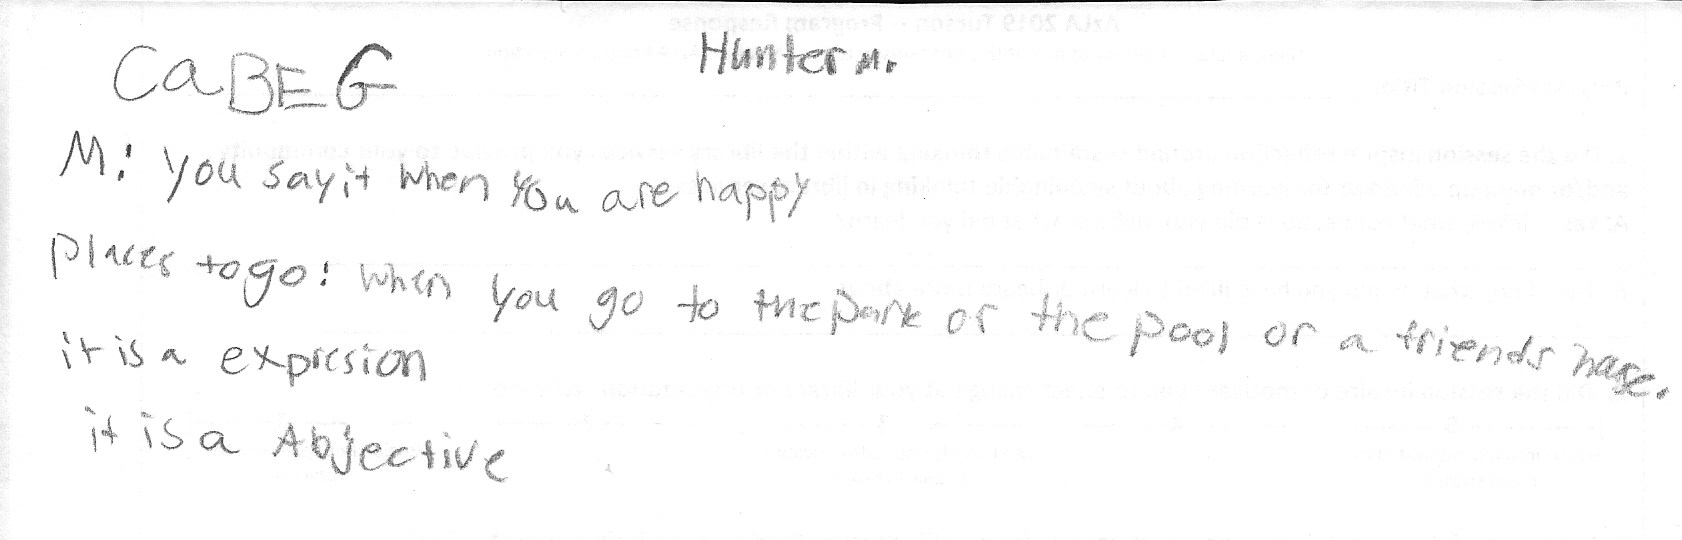 CaBEG
Hunter M.
M: You say it when you are happy
places to go: when you go to the park or the pool or a friends hase.
it is a expresion
it is a Abjective
AzLA 2019 Tucson - Program Response